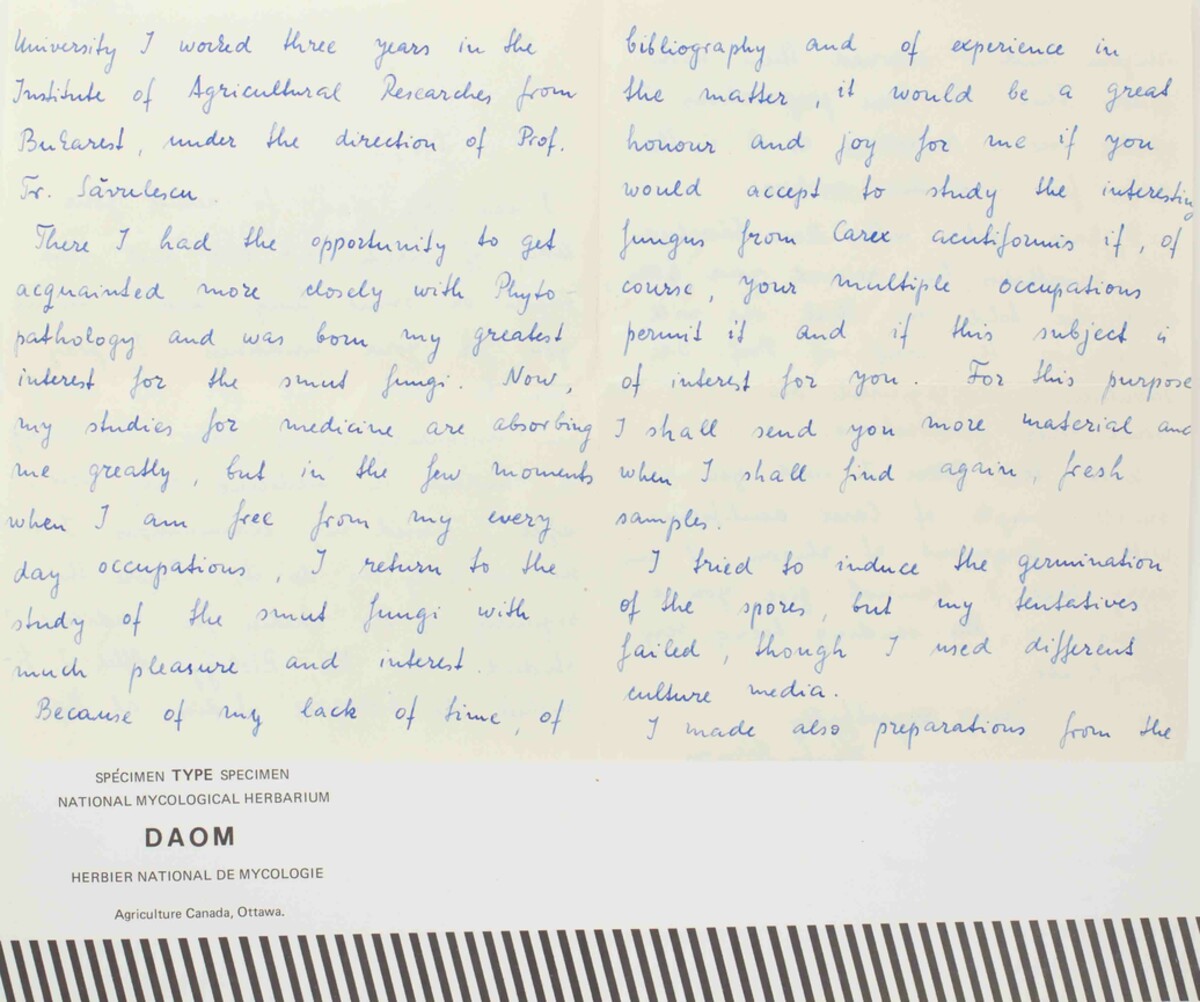 University I worked three years in the
Institute of Agricultural Researches from
Bukarest, under the direction of Prof.
Tr. Săvulescu
There I had the opportunity to get
acquainted more closely with Phyto-
pathology and was born my greatest
interest for the smut fungi. Now,
my studies for medicine are absorbing
me greatly, but in the few moments
when I am free from my every
day occupations, I return to the
study of the smut fungi with
much pleasure and interest.
Because of my lack of time, of
bibliography and of experience in
the matter, it would be a great
honour and joy for me if you
would accept to study the interesting
fungus from Carex acutiformis if, of
course, your multiple occupations
permit it and if this subject is
of interest for you. For this purpose
I shall send you more material and
when I shall find again, fresh
samples.
I tried to induce the germination
of the spores, but my tentatives
failed, though I used different
culture media.
I made also preparations from the
SPÉCIMEN TYPE SPECIMEN
NATIONAL MYCOLOGICAL HERBARIUM
DAOM
HERBIER NATIONAL DE MYCOLOGIE
Agriculture Canada, Ottawa.